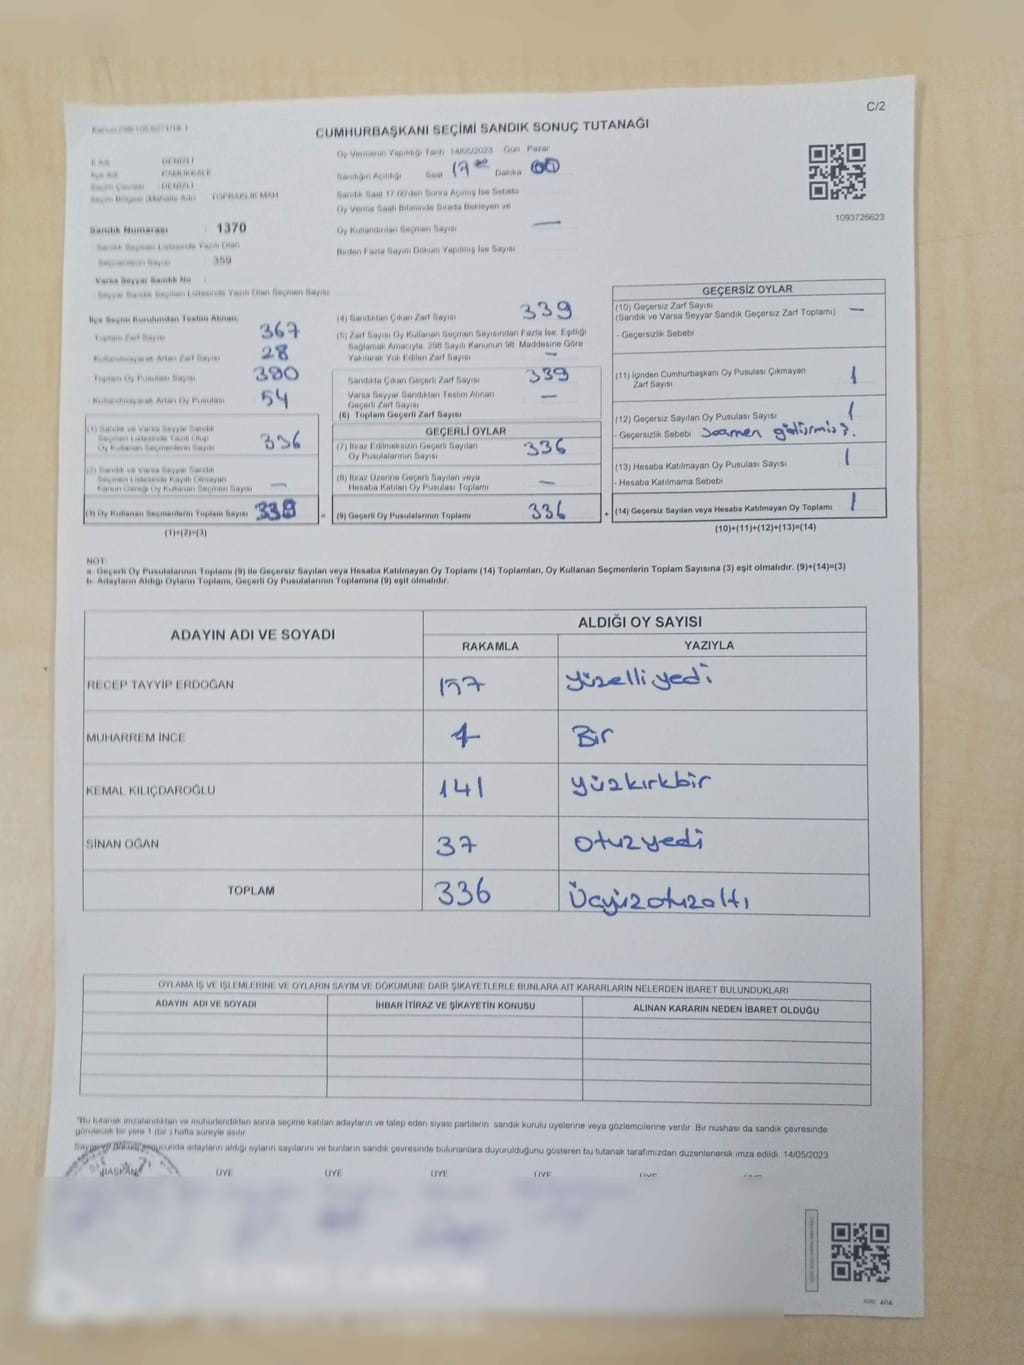 C/2
CUMHURBAŞKANI SEÇİMİ SANDIK SONUÇ TUTANAĞI
Oy Vermenin Yapıldığı Tarih 14/05/2023 Gün Pazar
İli DENİZLİ
İlçe Adı PAMUKKALE
Seçim Çevresi : DENİZLİ
Seçim Bölgesi (Mahalle Adı) TOPRAKLIK MAH
Sandığın Açıldığı Saat 17 00 Dakika 00
Sandık Saat 17.00'den Sonra Açılmış İse Sebebi
Oy Verme Saati Bitiminde Sırada Bekleyen ve
Oy Kullandırılan Seçmen Sayısı —
Birden Fazla Sayım Döküm Yapılmış İse Sayısı
1093726623
Sandık Numarası : 1370
Sandık Seçmen Listesinde Yazılı Olan
Seçmenlerin Sayısı : 359
Varsa Seyyar Sandık No
Seyyar Sandık Seçmen Listesinde Yazılı Olan Seçmen Sayısı
İlçe Seçim Kurulundan Teslim Alınan;
Toplam Zarf Sayısı 367
Kullanılmayarak Artan Zarf Sayısı 28
Toplam Oy Pusulası Sayısı 390
Kullanılmayarak Artan Oy Pusulası 54
(1) Sandık ve Varsa Seyyar Sandık
Seçmen Listesinde Yazılı Olup
Oy Kullanan Seçmenlerin Sayısı 336
(2) Sandık ve Varsa Seyyar Sandık
Seçmen Listesinde Kayıtlı Olmayan
Kanun Gereği Oy Kullanan Seçmen Sayısı —
(3) Oy Kullanan Seçmenlerin Toplam Sayısı 338
(1)+(2)=(3)
(4) Sandıktan Çıkan Zarf Sayısı 339
(5) Zarf Sayısı Oy Kullanan Seçmen Sayısından Fazla İse, Eşitliği
Sağlamak Amacıyla, 298 Sayılı Kanunun 98. Maddesine Göre
Yakılarak Yok Edilen Zarf Sayısı —
Sandıkta Çıkan Geçerli Zarf Sayısı 339
Varsa Seyyar Sandıktan Teslim Alınan
Geçerli Zarf Sayısı —
(6) Toplam Geçerli Zarf Sayısı
GEÇERLİ OYLAR
(7) İtiraz Edilmeksizin Geçerli Sayılan
Oy Pusulalarının Sayısı 336
(8) İtiraz Üzerine Geçerli Sayılan veya
Hesaba Katılan Oy Pusulası Toplamı —
= (9) Geçerli Oy Pusulalarının Toplamı 336
GEÇERSİZ OYLAR
(10) Geçersiz Zarf Sayısı
(Sandık ve Varsa Seyyar Sandık Geçersiz Zarf Toplamı) —
- Geçersizlik Sebebi
(11) İçinden Cumhurbaşkanı Oy Pusulası Çıkmayan
Zarf Sayısı 1
(12) Geçersiz Sayılan Oy Pusulası Sayısı 1
- Geçersizlik Sebebi
(13) Hesaba Katılmayan Oy Pusulası Sayısı 1
- Hesaba Katılmama Sebebi
+ (14) Geçersiz Sayılan veya Hesaba Katılmayan Oy Toplamı 1
(10)+(11)+(12)+(13)=(14)
NOT:
a- Geçerli Oy Pusulalarının Toplamı (9) ile Geçersiz Sayılan veya Hesaba Katılmayan Oy Toplamı (14) Toplamları, Oy Kullanan Seçmenlerin Toplam Sayısına (3) eşit olmalıdır. (9)+(14)=(3)
b- Adayların Aldığı Oyların Toplamı, Geçerli Oy Pusulalarının Toplamına (9) eşit olmalıdır.
ADAYIN ADI VE SOYADI
ALDIĞI OY SAYISI
RAKAMLA YAZIYLA
RECEP TAYYİP ERDOĞAN 157 yüzelliyedi
MUHARREM İNCE 1 Bir
KEMAL KILIÇDAROĞLU 141 yüzkırkbir
SİNAN OĞAN 37 otuzyedi
TOPLAM 336 Üçyüzotuzaltı
OYLAMA İŞ VE İŞLEMLERİNE VE OYLARIN SAYIM VE DÖKÜMÜNE DAİR ŞİKAYETLERLE BUNLARA AİT KARARLARIN NELERDEN İBARET BULUNDUKLARI
ADAYIN ADI VE SOYADI İHBAR İTİRAZ VE ŞİKAYETİN KONUSU ALINAN KARARIN NEDEN İBARET OLDUĞU
*Bu tutanak imzalandıktan ve mühürlendikten sonra seçime katılan adayların ve talep eden siyasi partilerin sandık kurulu üyelerine veya gözlemcilerine verilir. Bir nüshası da sandık çevresinde
görülecek bir yere 1 (bir) hafta süreyle asılır.
Sayım ve döküm sonucunda adayların aldığı oyların sayılarını ve bunların sandık çevresinde bulunanlara duyurulduğunu gösteren bu tutanak tarafımızdan düzenlenerek imza edildi. 14/05/2023
BAŞKAN ÜYE ÜYE ÜYE ÜYE